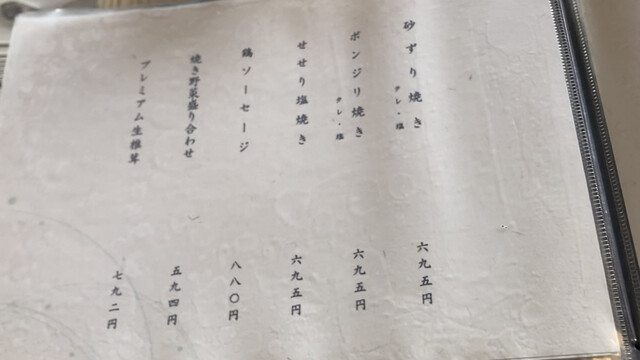 砂ずり焼き
タレ・塩
六九五円
ボンジリ焼き
タレ・塩
六九五円
せせり塩焼き
六九五円
鶏ソーセージ
八八〇円
焼き野菜盛り合わせ
五九四円
プレミアム生椎茸
七九二円